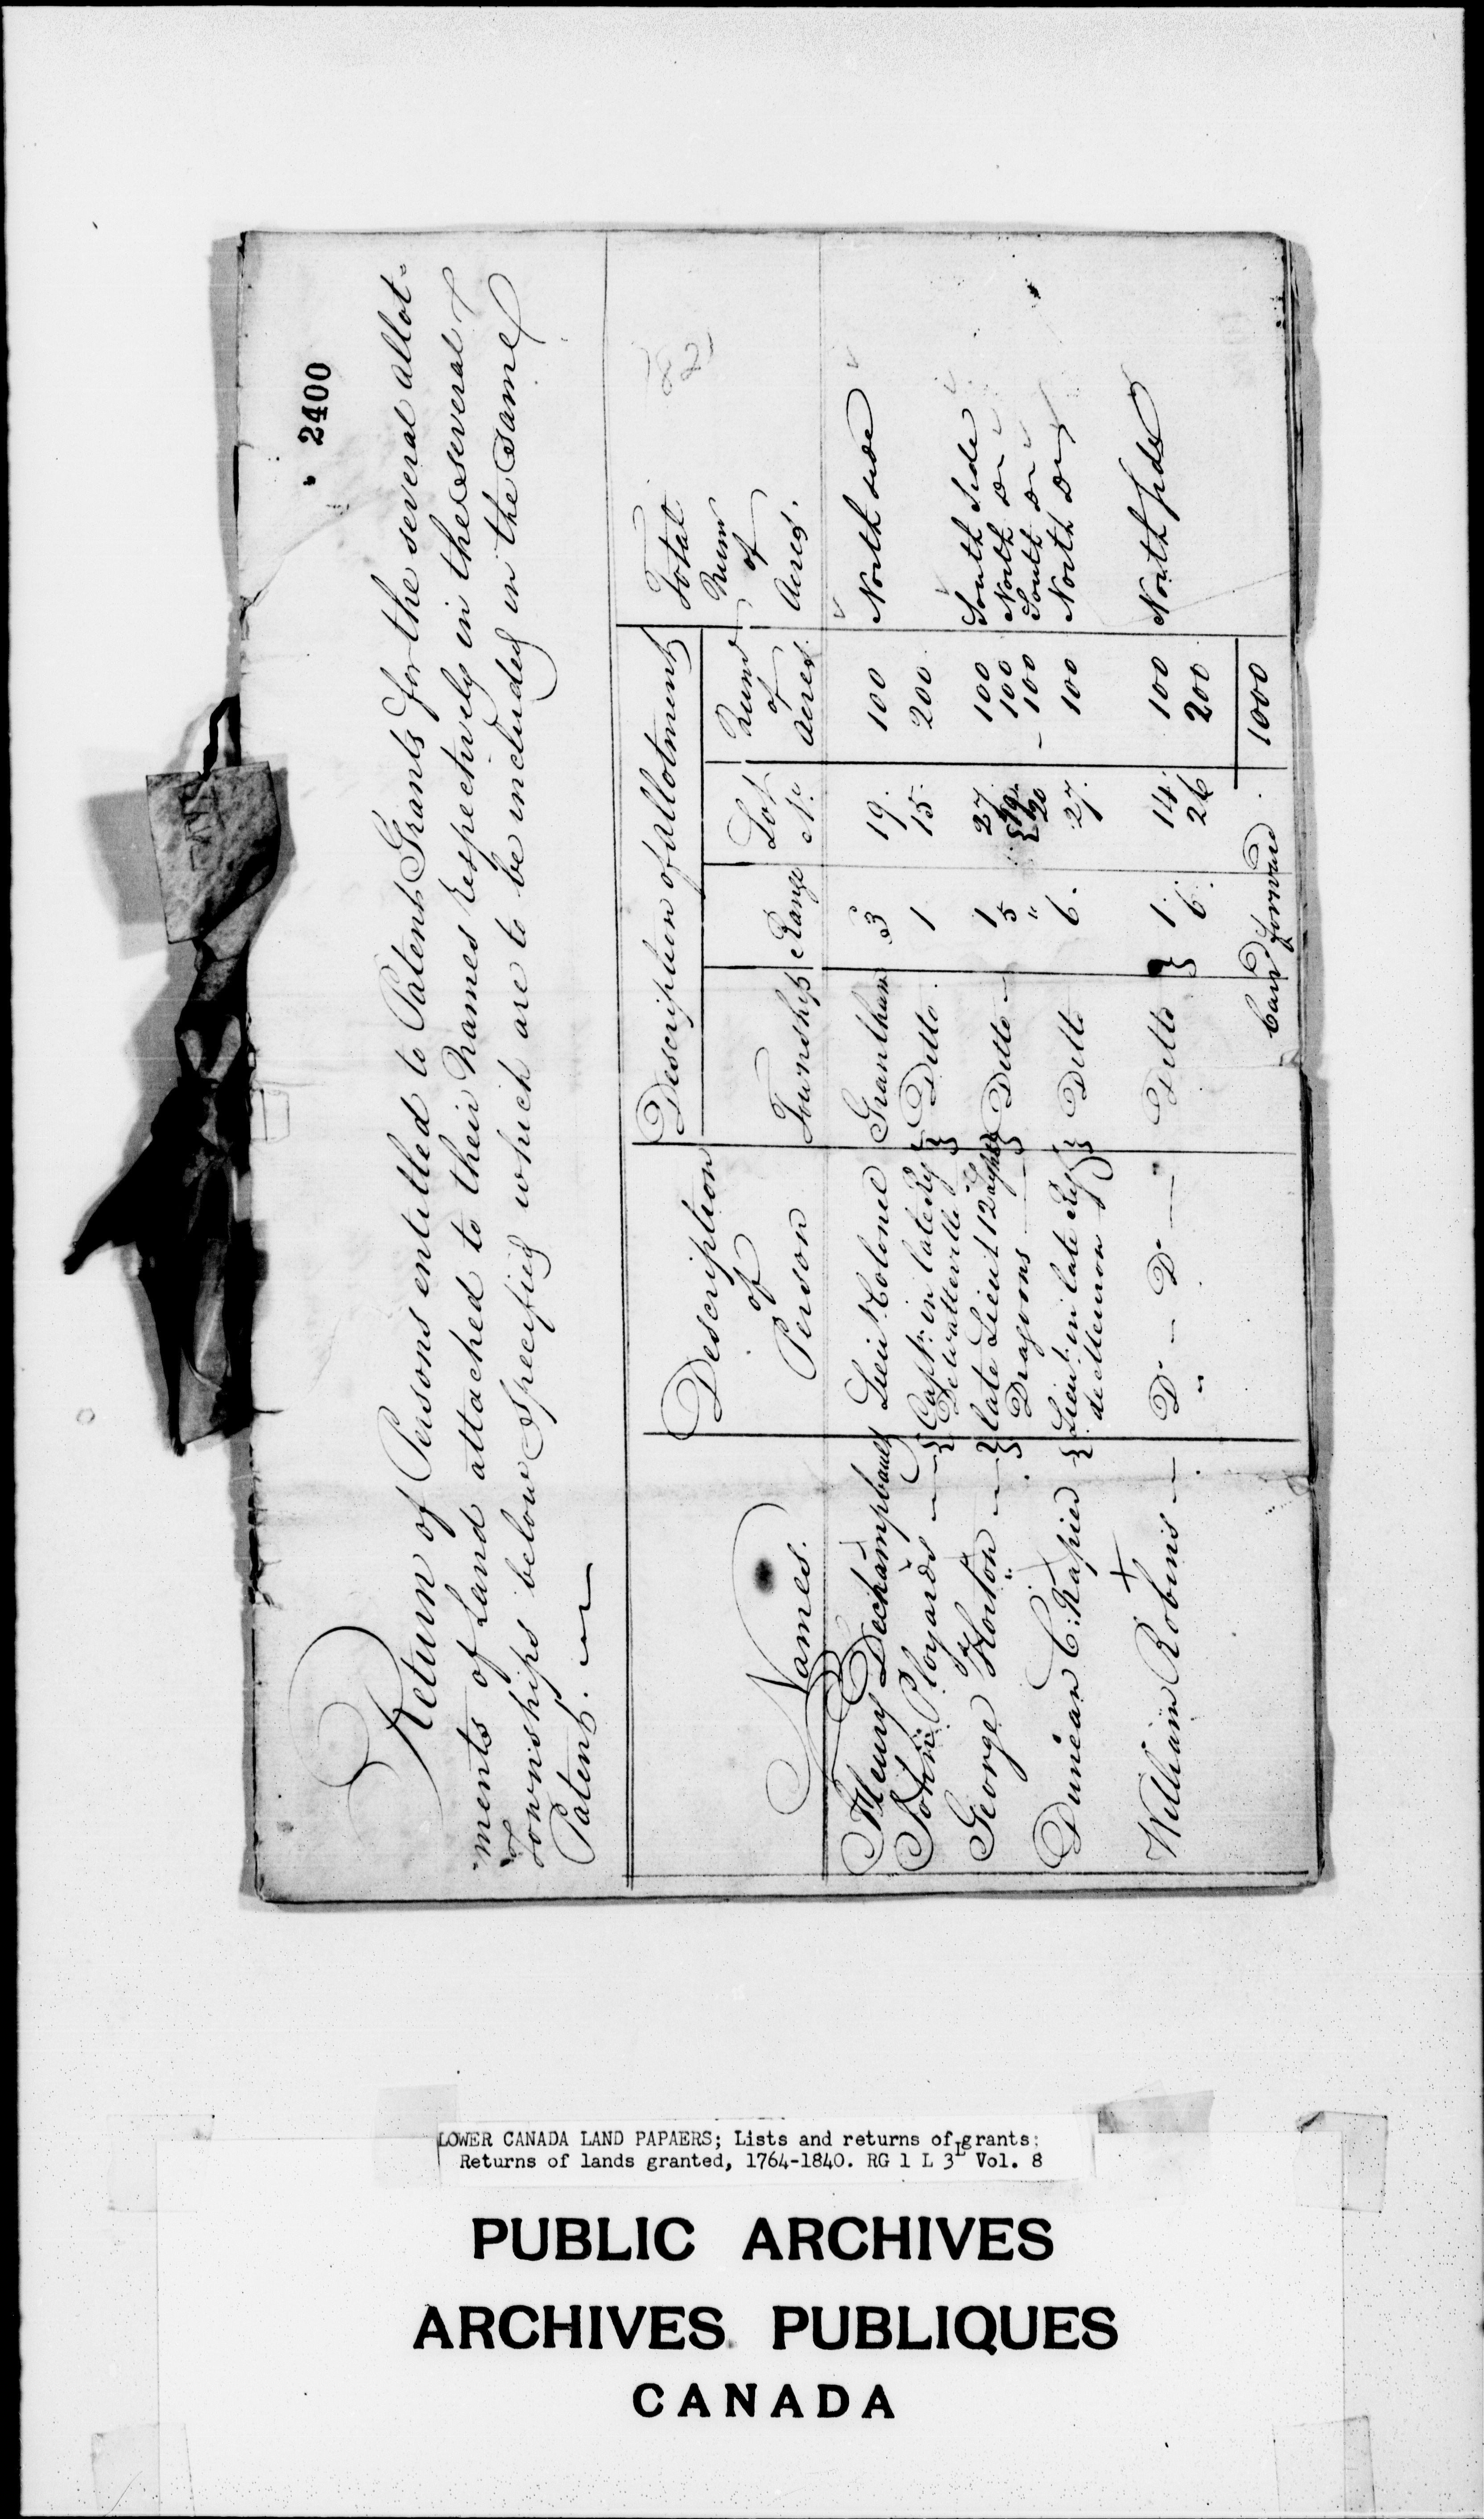 2400
Return of Persons entitled to Patent Grants for the several allot-
-ments of Land attached to their Names respectively in the several
Townships below Specified which are to be included in the same
Patent.
Names.
Description of Person
Description of allotment
Township
Range
Lot No.
Num of Acres
Total Num of Acres.
Fleury Dechampbault Lieut. Colonel Grantham 3 19. 100 North side
John Ployards Captn. in late Reg Dewatteville Ditto 1 15. 200
George Horton late Lieut 12 Dragoons Ditto 1 27. 100 South Side
5 19. 100 North Do
" 20 100 South Do
Duncan C. Napier Lieut. in late Reg de Meuron Ditto 6. 27. 100 North Do
William Robins Do - Do Ditto 1. 14. 100 North side
6. 26 200
Card forward 1000
LOWER CANADA LAND PAPAERS; Lists and returns of grants:
Returns of lands granted, 1764-1840. RG 1 L 3L Vol. 8
PUBLIC ARCHIVES
ARCHIVES PUBLIQUES
CANADA